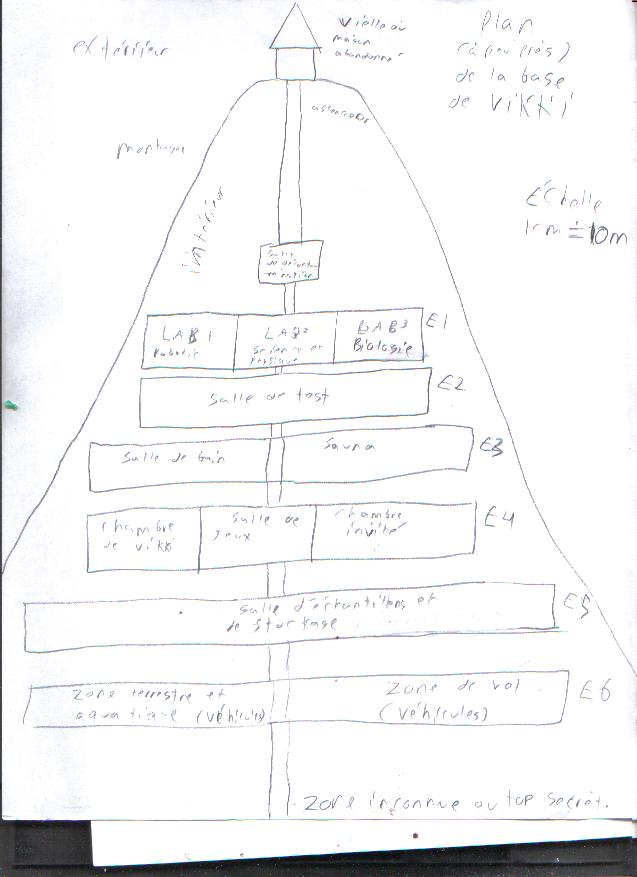 extérieur
Vielle ou
maison
abandonner
Plan
(à peu près)
de la base
de Vikki
assenceur
montagne
intérieur
Échelle
1cm = 10m
Salle
LAB1
LAB2
LAB3
Biologie
E1
Salle de test
E2
Salle de bain
Sauna
E3
Chambre
de vikki
Salle de
Jeux
Chambre
invité
E4
Salle d'échantillons et
de Stockage
E5
Zone terrestre et
aquatique (véhicules)
Zone de vol
(véhicules)
E6
Zone inconnue ou top secrèt.